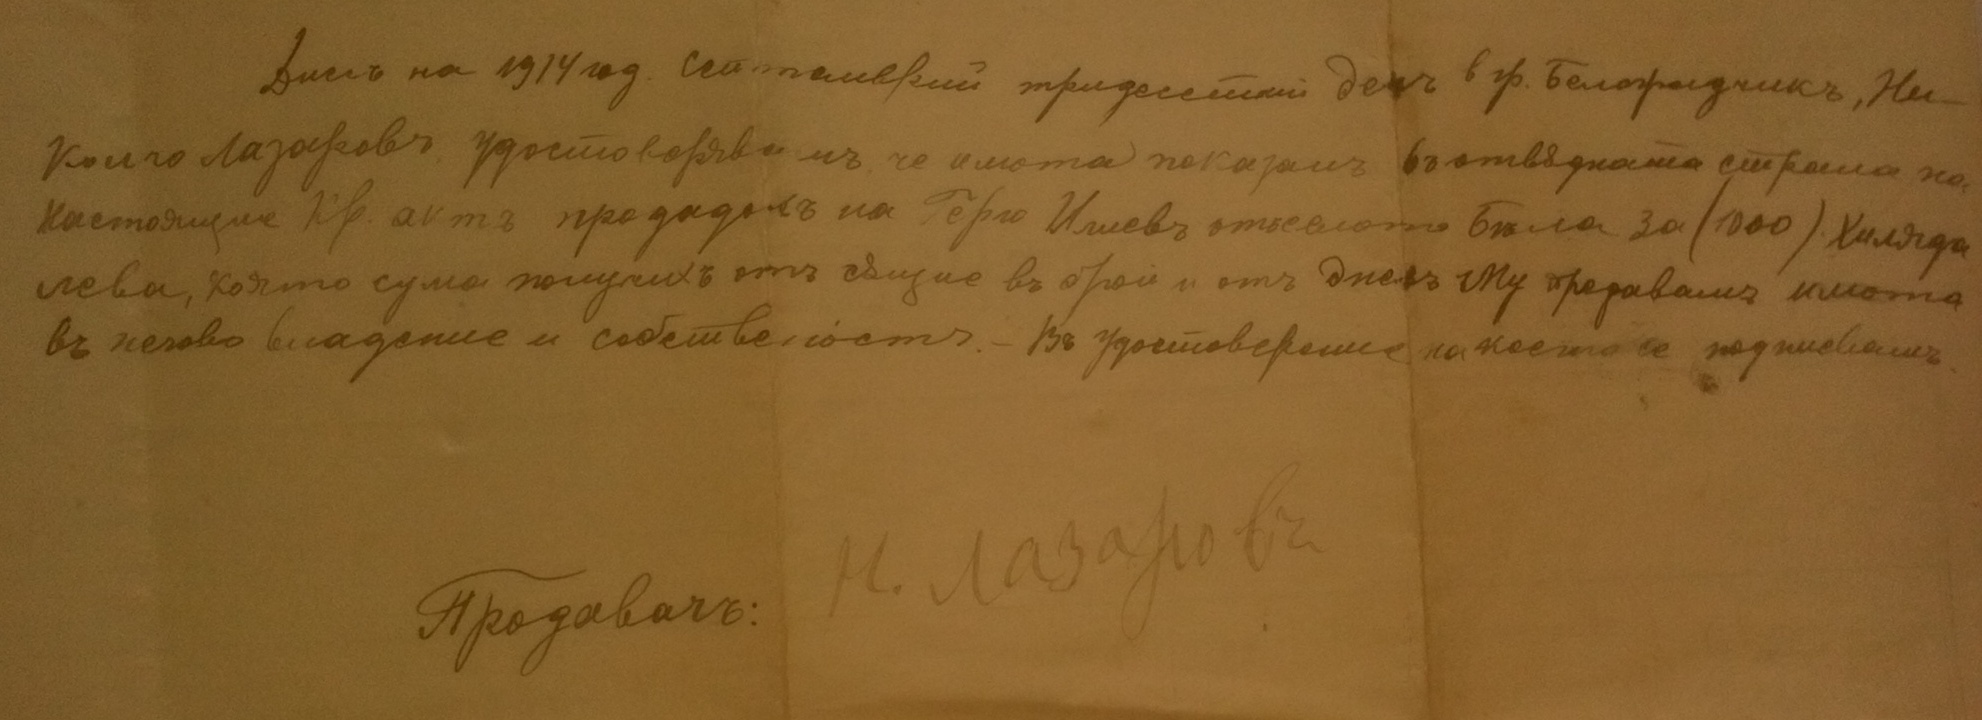 Днесь на 1914 год. Септемврий тридесетий день в гр. Белоградчикъ, Ни-
колчо Лазаровъ, удостоверявамъ, че имота показанъ въ отвѣдната страна на
настоящие кр. актъ продадохъ на Герго Илиевъ отъ селото Бѣла за (1000) Хиляда
лева, която сума получихъ отъ сѫщие въ брой и отъ днесь му предавамъ имота
въ негово владение и собственость. – Въ удостоверение на което се подписвамъ.
Продавачъ: Н. Лазаровъ